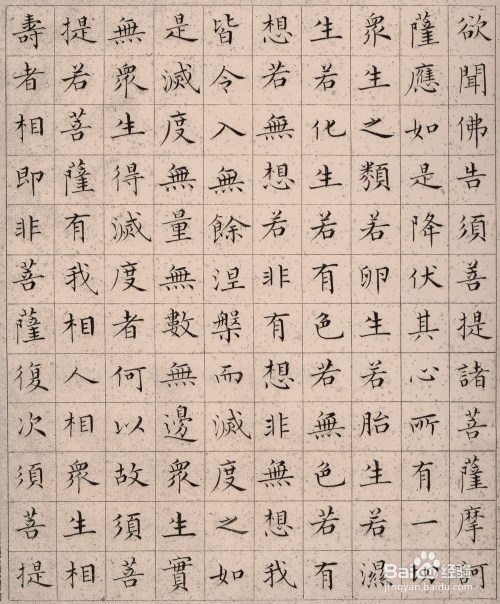 欲聞佛告須善提諸菩薩摩訶
薩應如是降伏其心所有一切
衆生之類若卵生若胎生若濕
生若化生若有色若無色若有
想若無想若非有想非無想我
皆令入無餘涅槃而滅度之如
是滅度無量無數無邊衆生實
無衆生得滅度者何以故須菩
提若菩薩有我相人相衆生相
壽者相即非菩薩復次須菩提
Baidu 经验
jingyan.baidu.com